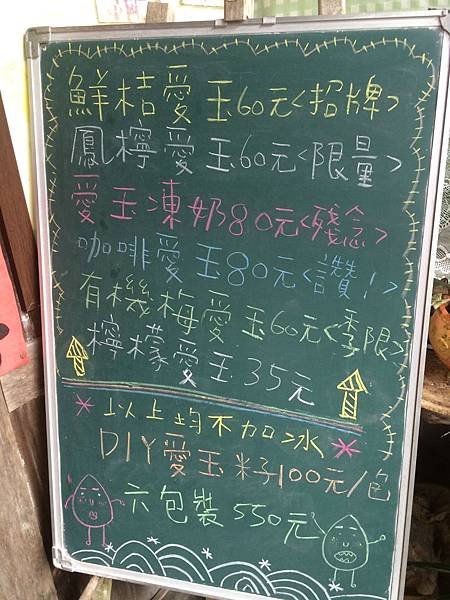 鮮桔愛玉60元<招牌>
鳳檸愛玉60元<限量>
愛玉凍奶80元<殘念>
咖啡愛玉80元<讚!>
有機梅愛玉60元<季限>
檸檬愛玉35元
*以上均不加冰*
DIY愛玉籽100元/包
六包裝550元